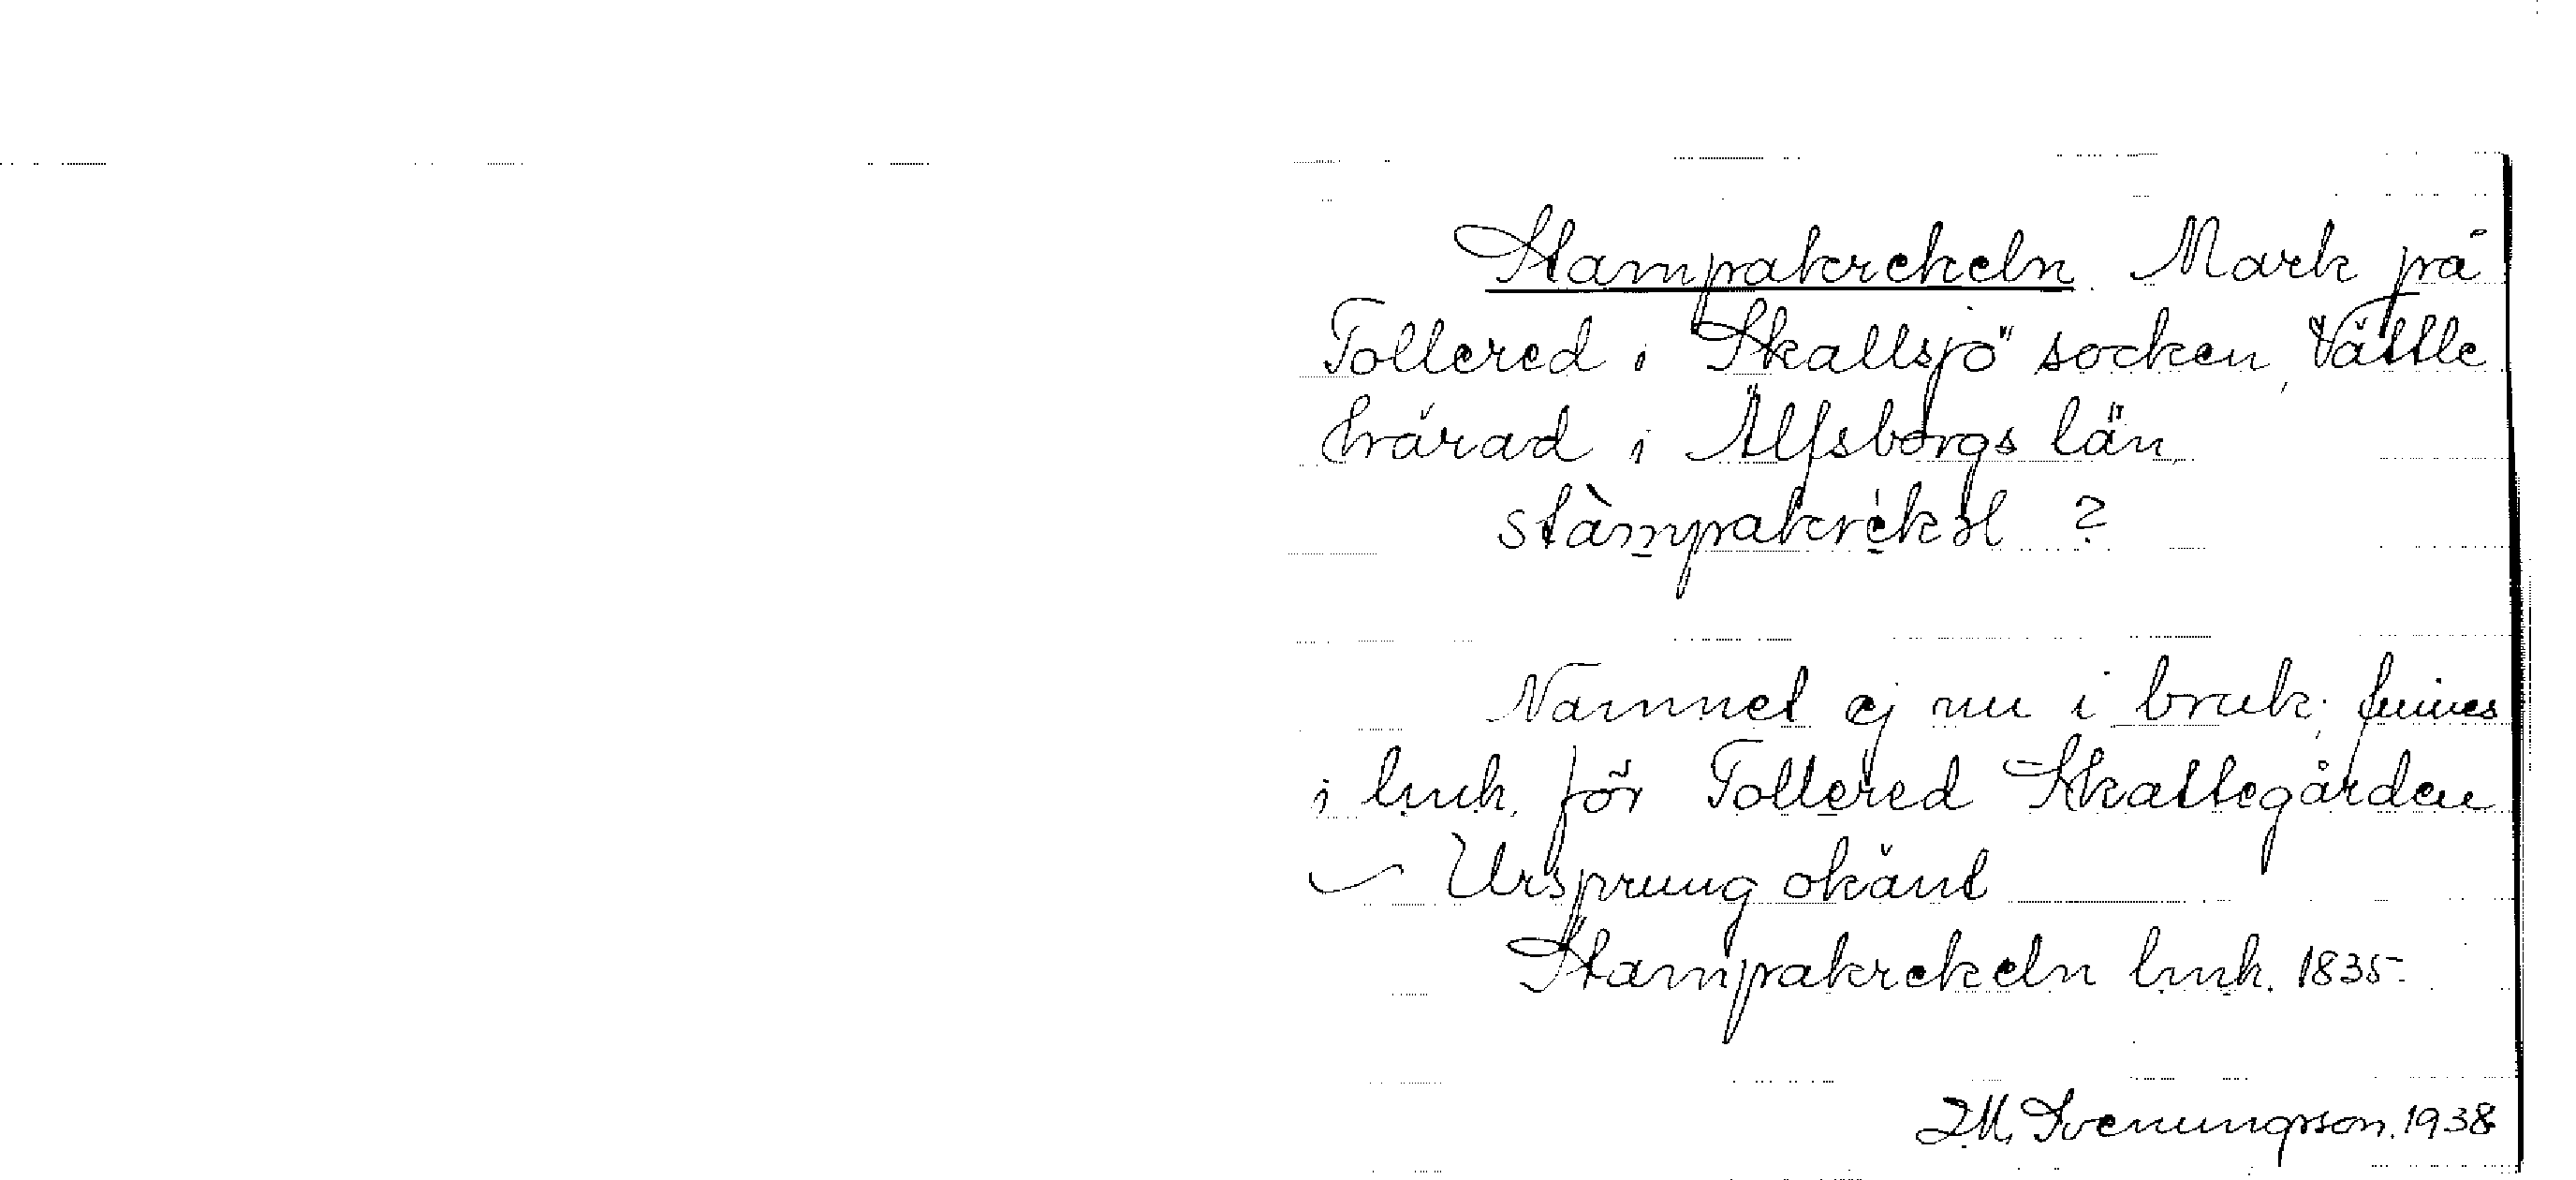 Stampakrekeln. Mark på
Tollered i Skallsjö socken, Vättle
härad i Älfsborgs län.
stàmpakrèkəl ?
Namnet ej nu i bruk; finnes
i lmk. för Tollered Skattegården
Ursprung okänt
Stampakrekeln lmk. 1835.
I.M. Svenungsson. 1938